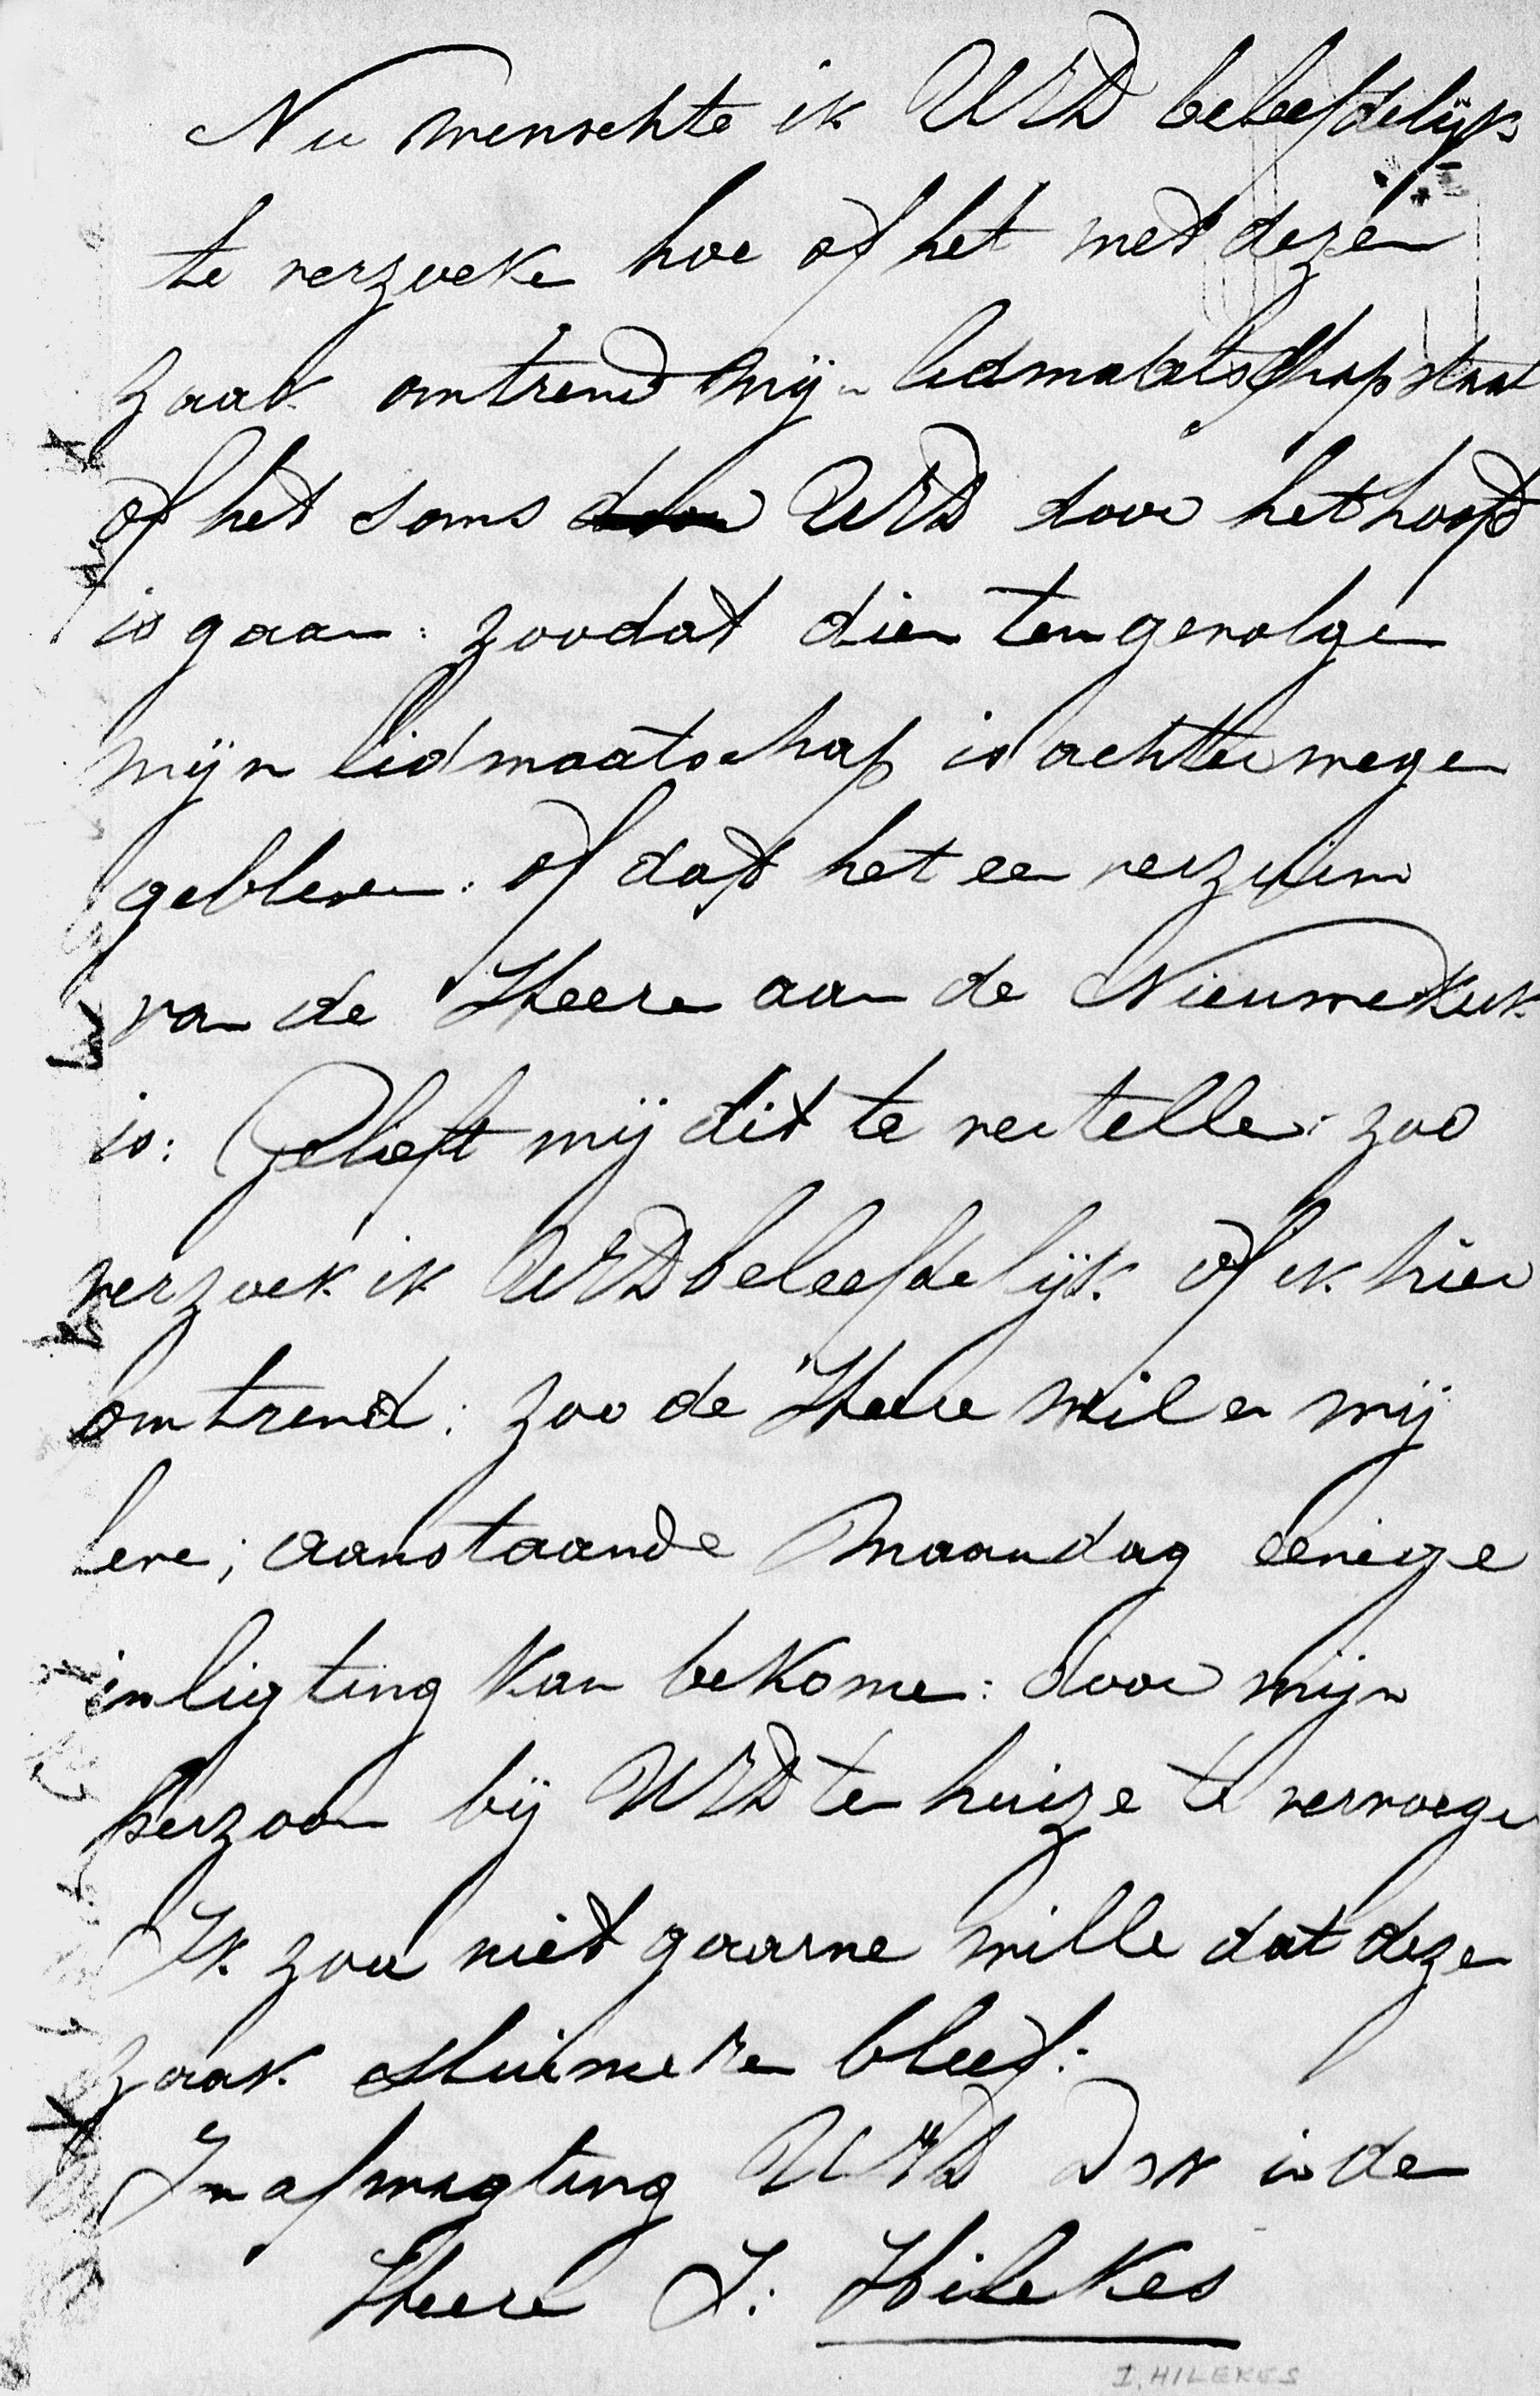 Nu wenschte ik UED beleefdelijk
te verzoeke hoe of het met dezen
zaak omtrend mijn lidmaatschap staat
of het soms UED door het hoofd
is gaan: zoodat dien tengevolgen
mijn lidmaatschap is achterwege
gebleven: of dat het een verzuim
van de Heere aan de Nieuwekerk
is: Gelieft mij dit te vertelle: zoo
verzoek ik UED beleefdelijk of ik hier
omtrend: zoo de Heere wil en mij
leve; aanstaande Maandag eenige
inligting kan bekome: door mijn
perzoon bij UED ten huize te vervoege
Ik zou niet gaarne wille dat deze
zaak sluimeren bleef:
In afwagting UED Dnr in de
Heere I: Hilekes
I. HILEKES